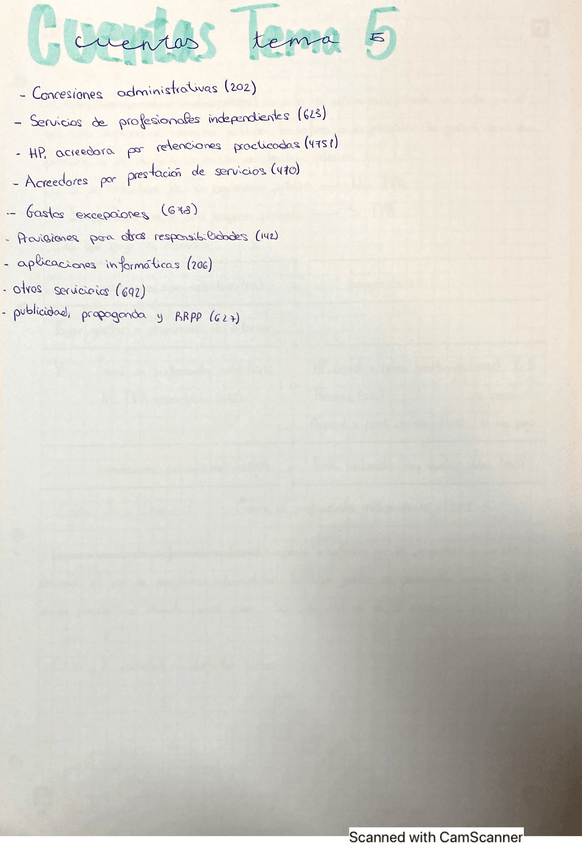 Cuentas Tema 5
cuentas tema 5
- Concesiones administrativas (202)
- Servicios de profesionales independientes (623)
- HP, acreedora por retenciones practicadas (4751)
- Acreedores por prestación de servicios (410)
- Gastos excepciones (678)
- Provisiones para otras responsibilidades (142)
- aplicaciones informáticas (206)
- otros servicios (692)
- publicidad, propaganda y RRPP (627)
Scanned with CamScanner